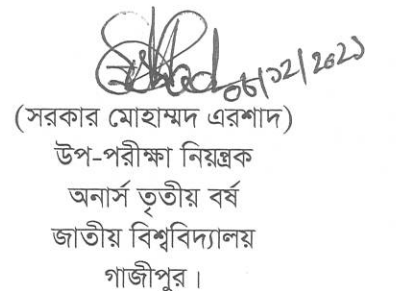 06/12/2023
(সরকার মোহাম্মদ এরশাদ)
উপ-পরীক্ষা নিয়ন্ত্রক
অনার্স তৃতীয় বর্ষ
জাতীয় বিশ্ববিদ্যালয়
গাজীপুর।